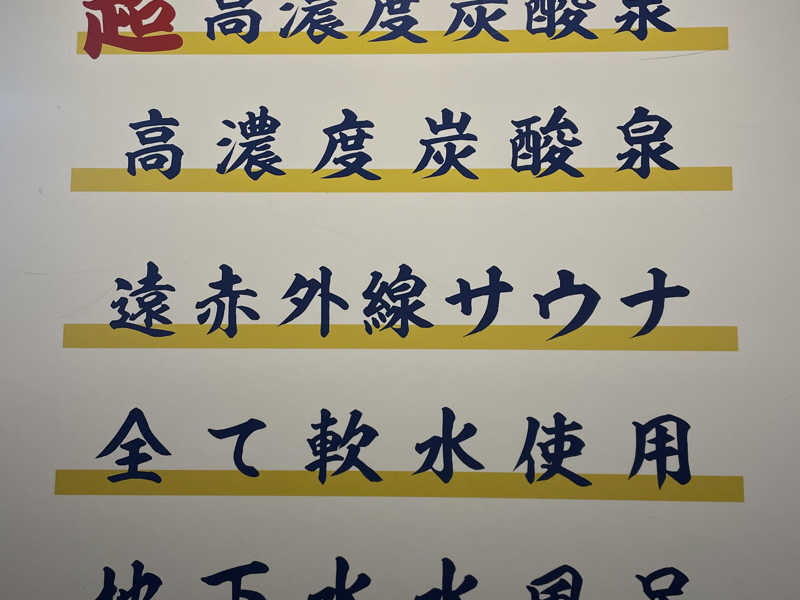 超高濃度炭酸泉
高濃度炭酸泉
遠赤外線サウナ
全て軟水使用
地下水水風呂